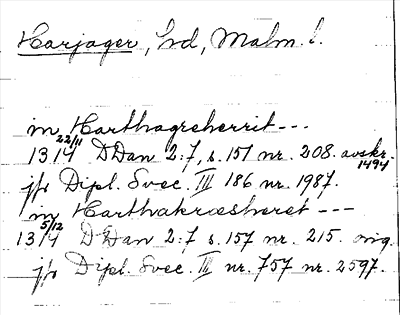 Harjager, hd, Malm. l.
in Harthagreherrit ---
22/11
1314 DDan 2:7, s. 151 nr. 208. avskr. 1494
jfr Dipl. Svec. III 186 nr. 1987.
in Harthakræsheret ---
5/12
1314 DDan 2:7 s. 157 nr. 215. orig.
jfr Dipl. Svec. III nr. 757 nr. 2597.